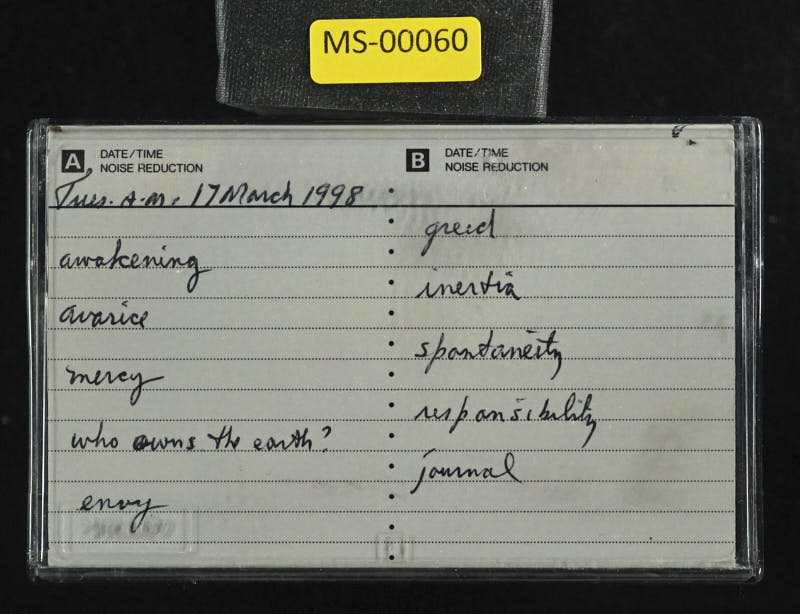 MS-00060
A DATE/TIME
NOISE REDUCTION
Tues. A.M. 17 March 1998
awakening
avarice
mercy
who owns the earth?
envy
B DATE/TIME
NOISE REDUCTION
greed
inertia
spontaneity
responsibility
journal